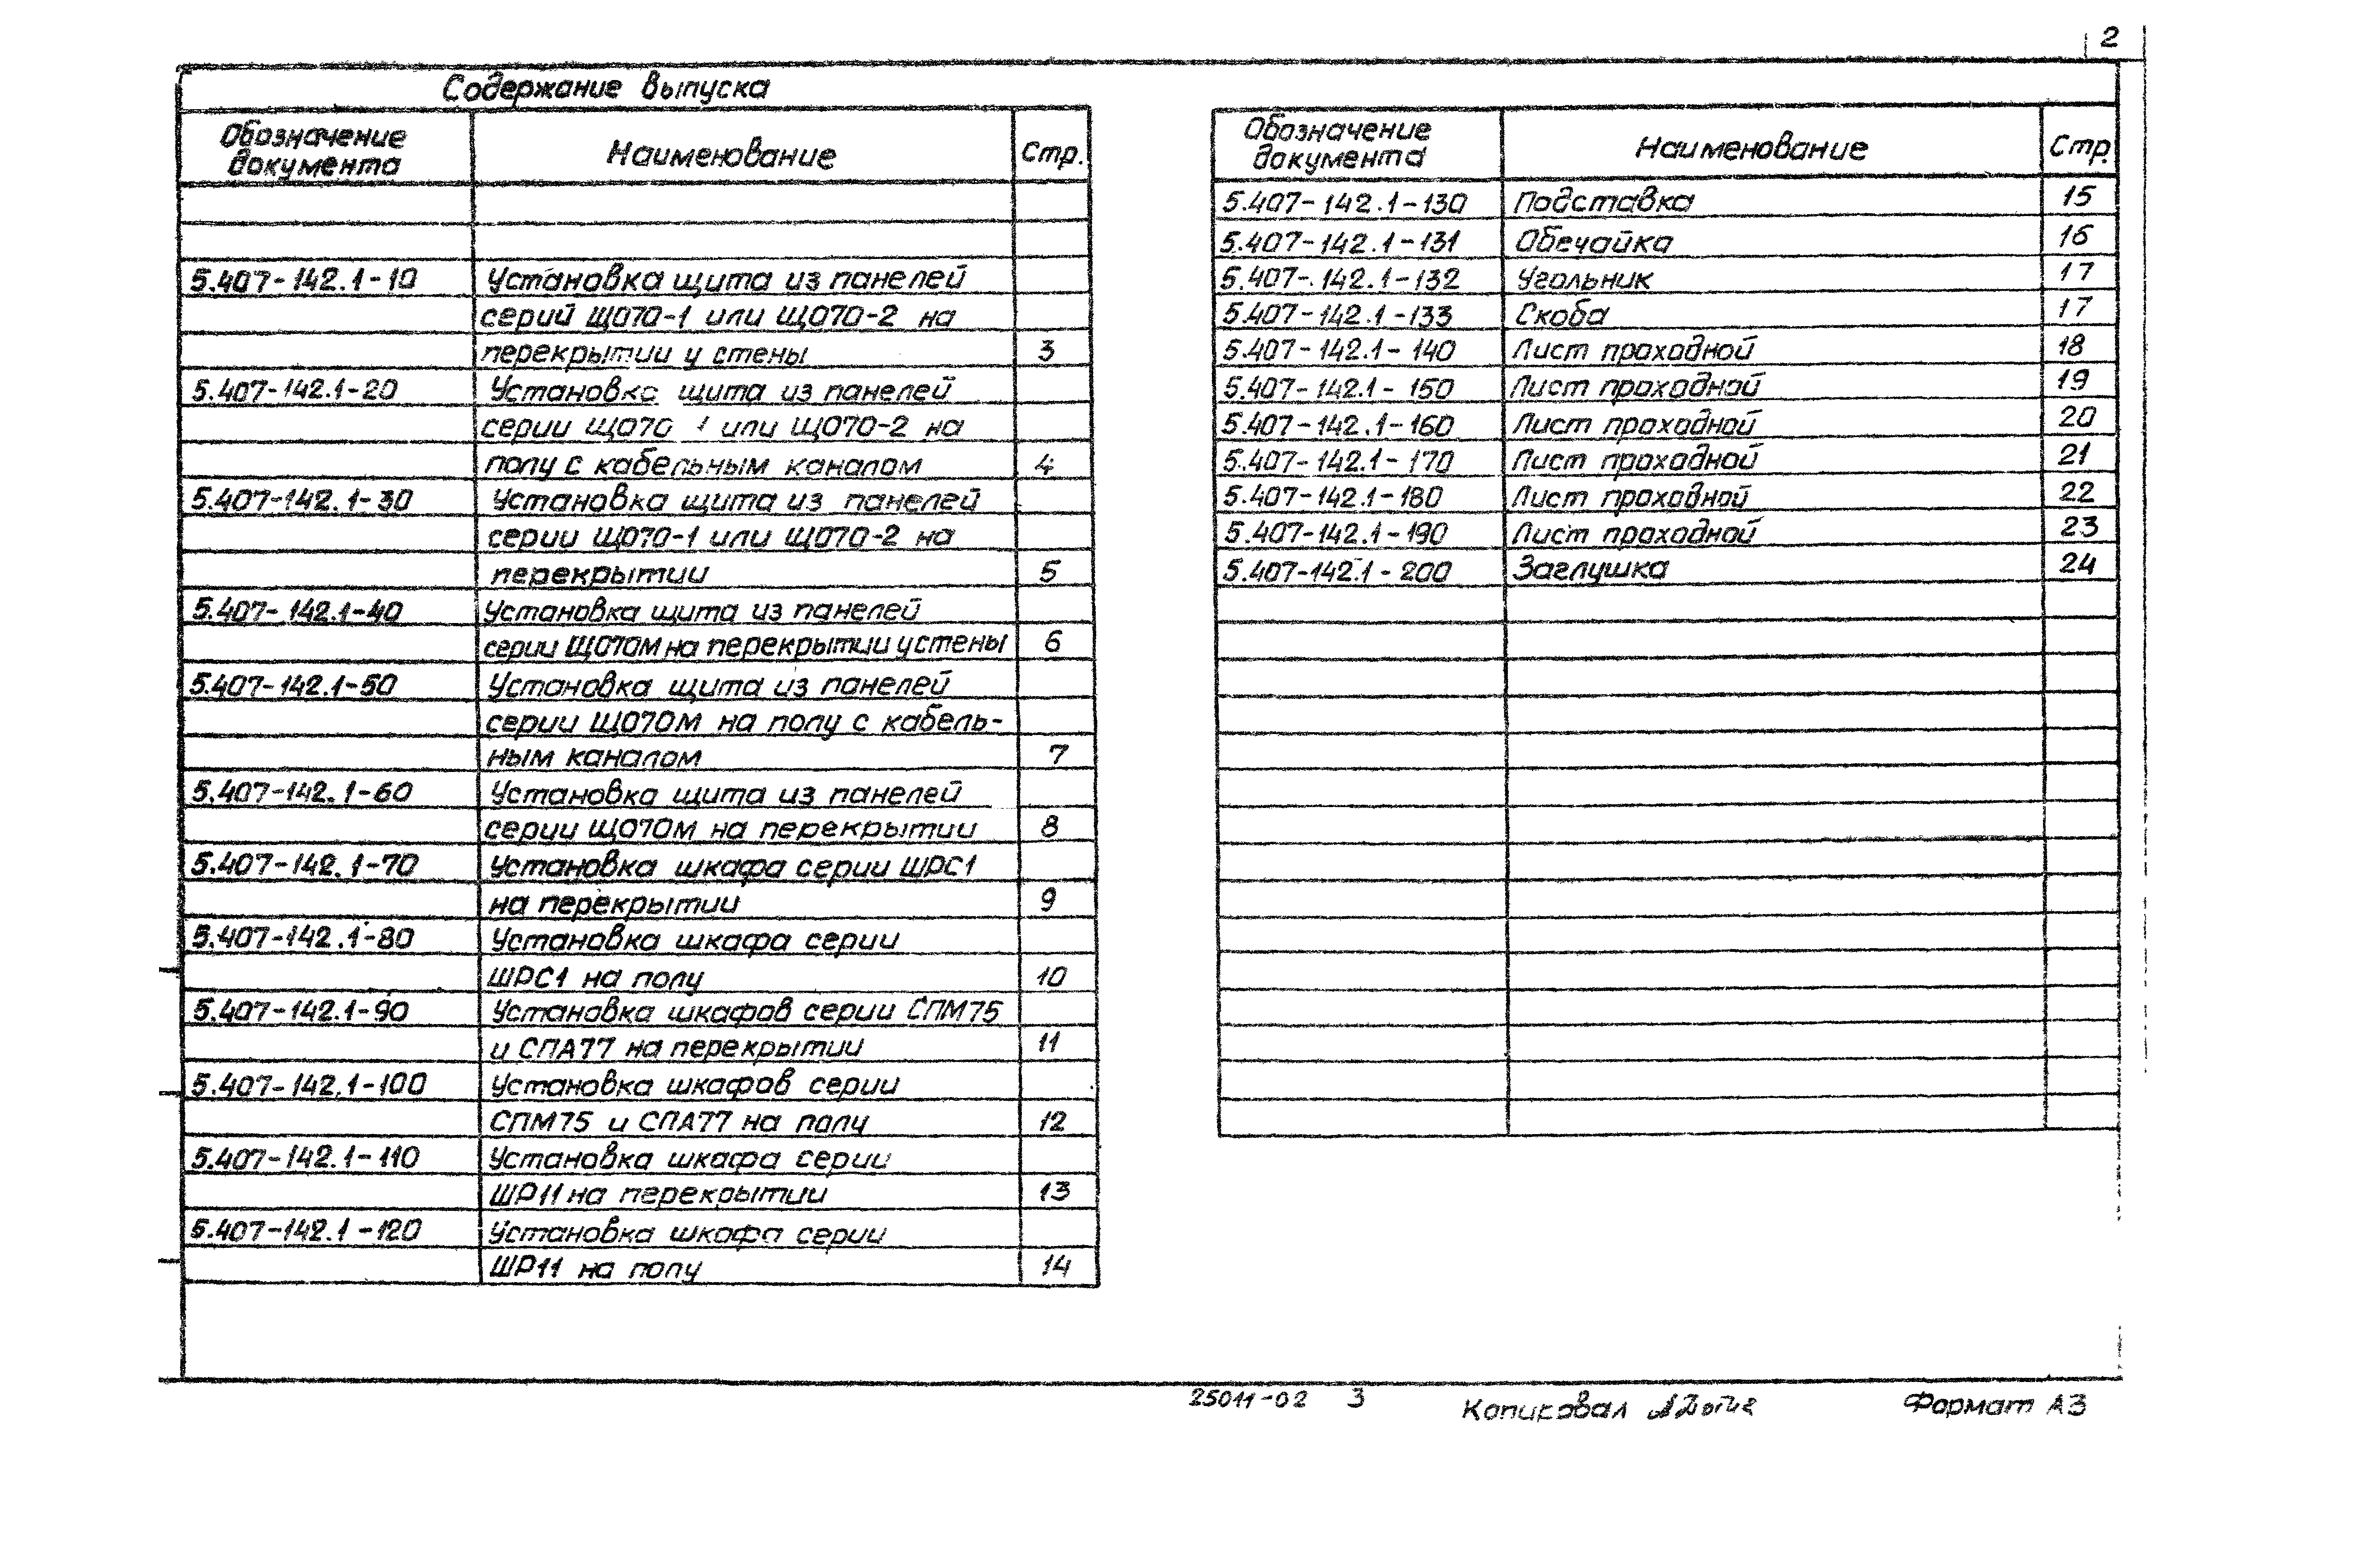 2
Содержание выпуска
Обозначение документа Наименование Стр.
5.407-142.1-10 Установка щита из панелей
серий ЩО70-1 или ЩО70-2 на
перекрытии у стены 3
5.407-142.1-20 Установка щита из панелей
серии ЩО70 1 или ЩО70-2 на
полу с кабельным каналом 4
5.407-142.1-30 Установка щита из панелей
серии ЩО70-1 или ЩО70-2 на
перекрытии 5
5.407-142.1-40 Установка щита из панелей
серии ЩО70М на перекрытии у стены 6
5.407-142.1-50 Установка щита из панелей
серии ЩО70М на полу с кабель-
ным каналом 7
5.407-142.1-60 Установка щита из панелей
серии ЩО70М на перекрытии 8
5.407-142.1-70 Установка шкафа серии ШРС1
на перекрытии 9
5.407-142.1-80 Установка шкафа серии
ШРС1 на полу 10
5.407-142.1-90 Установка шкафов серии СПМ75
и СПА77 на перекрытии 11
5.407-142.1-100 Установка шкафов серии
СПМ75 и СПА77 на полу 12
5.407-142.1-110 Установка шкафа серии
ШР11 на перекрытии 13
5.407-142.1-120 Установка шкафа серии
ШР11 на полу 14
Обозначение документа Наименование Стр.
5.407-142.1-130 Подставка 15
5.407-142.1-131 Обечайка 16
5.407-142.1-132 Угольник 17
5.407-142.1-133 Скоба 17
5.407-142.1-140 Лист проходной 18
5.407-142.1-150 Лист проходной 19
5.407-142.1-160 Лист проходной 20
5.407-142.1-170 Лист проходной 21
5.407-142.1-180 Лист проходной 22
5.407-142.1-190 Лист проходной 23
5.407-142.1-200 Заглушка 24
25011-02 3 Копировал Формат А3